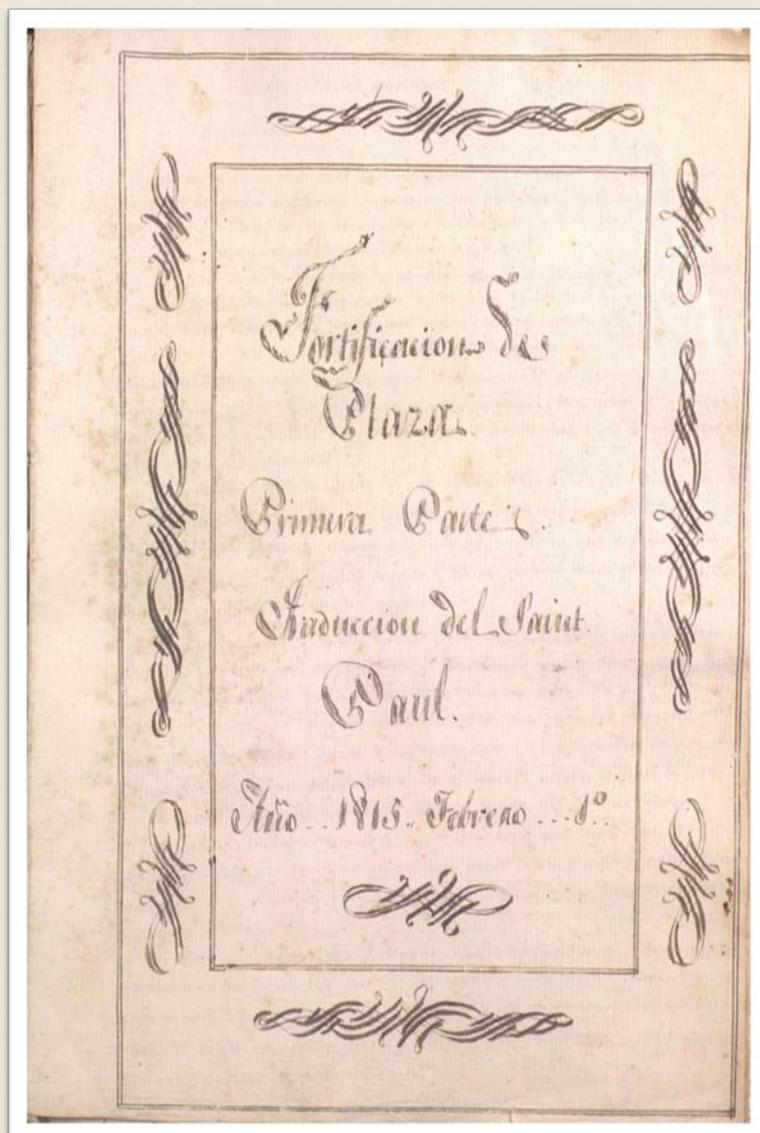 Fortificacion de
Plaza.
Primera Parte.
Traduccion del Saint
Paul.
Año .. 1815.. Febrero ... 1º.